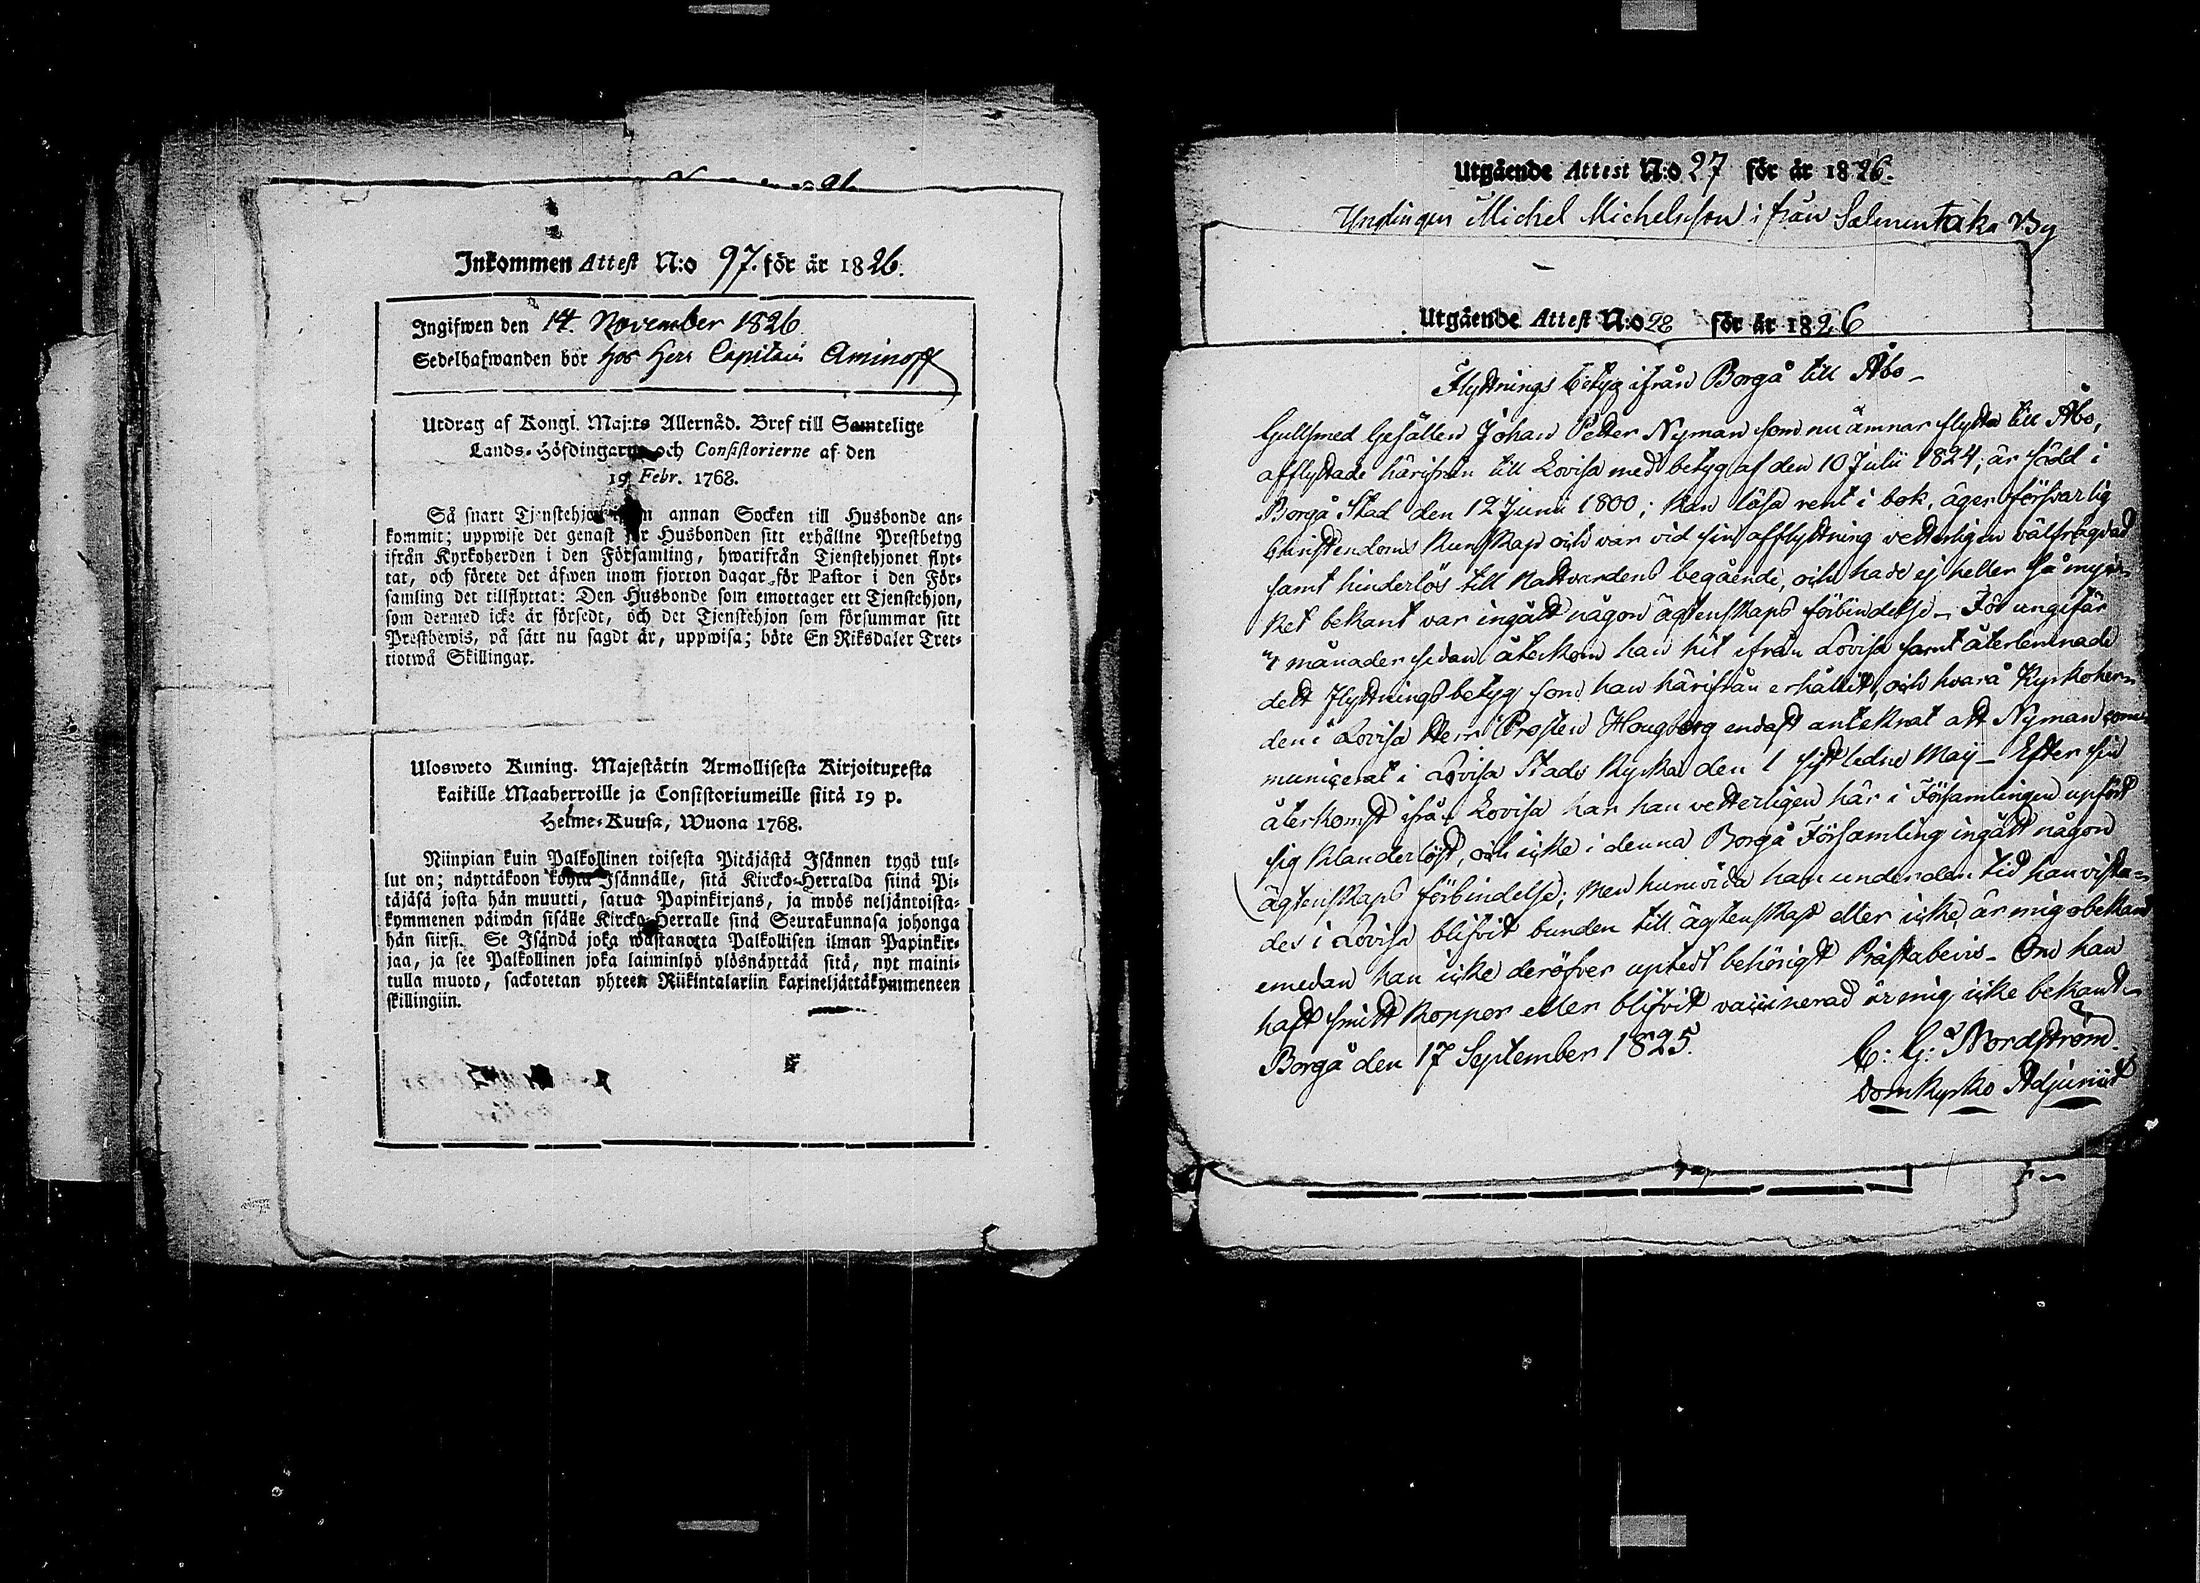 Inkommen Attest N:o 97. för år 1826.
Ingifwen den 14. November 1826.
Sedelhafwanden bor hos Herr Capitain Aminoff
Utdrag af Kongl. Maj:ts Allernåd. Bref till Samtelige
Lands-Höfdingarne och Consistorierne af den
19 Febr. 1768.
Så snart Tjenstehjon annan Socken till Husbonde an-
kommit; uppwise det genast för Husbonden sitt erhållne Prestbetyg
ifrån Kyrkoherden i den Församling, hwarifrån Tjenstehjonet flyt-
tat, och förete det äfwen inom fjorton dagar för Pastor i den För-
samling det tillflyttat: Den Husbonde som emottager ett Tjenstehjon,
som dermed icke är försedt, och det Tjenstehjon som försummar sitt
Prestbewis, på sätt nu sagdt är, uppwisa; böte En Riksdaler Tret-
tiotwå Skillingar.
Ulosweto Kuning. Majestätin Armollisesta Kirjoituxesta
kaikille Maaherroille ja Consistoriumeille siitä 19 p.
Helme-Kuusa, Wuona 1768.
Niinpian kuin Palkollinen toisesta Pitäjästä Isännen tygö tul-
lut on; näyttäkoon kohta Isännälle, sitä Kircko-Herralda siinä Pi-
täjäsä josta hän muutti, satua Papinkirjans, ja myös neljäntoista-
kymmenen päiwän sisälle Kircko-Herralle sinä Seurakunnasa johonga
hän siirsi. Se Isändä joka wastanotta Palkollisen ilman Papinkir-
jaa, ja see Palkollinen joka laiminlyö ylösnäyttää sitä, nyt maini-
tulla muoto, sackotetan yhteen Riikintalariin kaxineljättäkymmeneen
skillingiin.
Utgående Attest N:o 27 för år 1826.
Ynglingen Michel Michelsson ifrån Salmentaka By
Utgående Attest N:o 28 för år 1826
Flyttnings betyg ifrån Borgå till Åbo-
Gullsmed Gesällen Johan Petter Nyman som nu ämnar flytta till Åbo,
afflyttade härifrån till Lovisa med betyg af den 10 Julii 1824; är född i
Borgå Stad den 12 Junii 1800; kan läsa rent i bok, äger försvarlig
Christendoms Kunskap och var vid sin afflyttning vetterligen välfrägdad
samt hinderlös till Nattvardens begående, och hade ej heller så myc-
ket bekant var ingått någon ägtenskaps förbindelse- För ungefär
månader sedan återkom han hit ifrån Lovisa samt återlemnade
dett Flyttningsbetyg som han härifrån erhållit, och hvarå Kyrkoher-
den i Lovisa Herr Prosten Hougberg endast anteknat att Nyman com-
municerat i Lovisa Stads Kyrka den 1 sistledne Maij- Efter sin
återkomst ifrån Lovisa har han vetterligen här i Församlingen upfört
sig klanderlöst, och icke i denna Borgå Församling ingått någon
ägtenskaps förbindelse; Men huruvida han under den tid han vista-
des i Lovisa blifvit bunden till ägtenskap eller icke, är mig obekant
emedan han icke deröfver uptedt behörigt Prästabevis- Om han
haft smittkoppor eller blifvit vaccinerad är mig icke bekant-
Borgå den 17 September 1825.
C: G: Nordström.
Domkyrko Adjunct